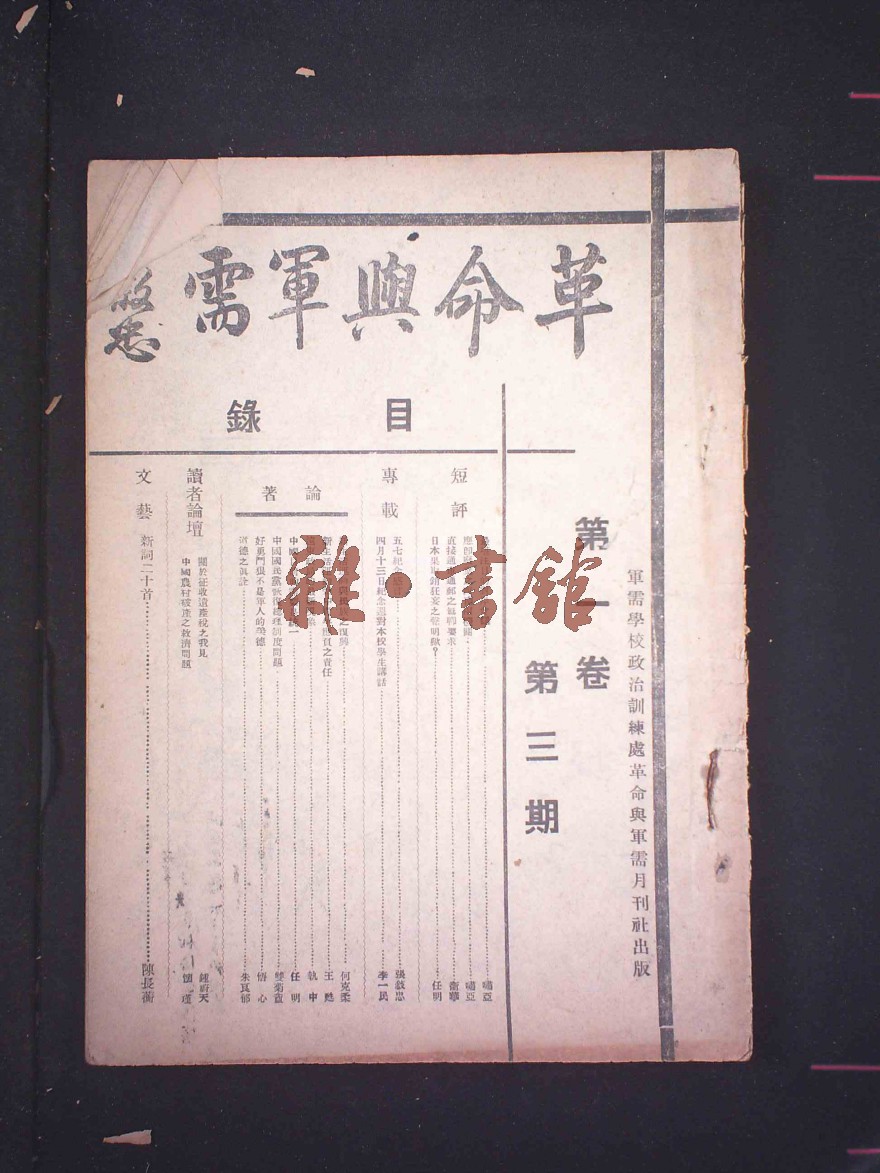 革命與軍需
目錄
第一卷
第三期
軍需學校政治訓練處革命與軍需月刊社出版
短評
直接通 通郵之 要求
日本 狂妄之聲明歟？
嘯亞
嘯亞
衛華
任明
專載
五七紀念
四月十三日紀念週對本校學生講話
張敍忠
李一民
論著
之復興
新生活 負之責任
中國 一
中國國民黨恢復總理制度問題
好勇鬥狠不是軍人的美德
道德之真詮
何克柔
王甦
執中
任明
雙菊薌
悟心
朱真郁
讀者論壇
關於征收遺產稅之我見
中國農村破產之救濟問題
鍾府天
文藝
新詞二十首
陳長蘅
雜·書館